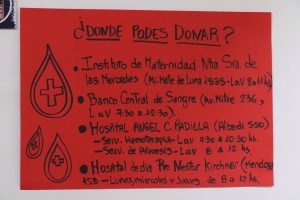 ¿DONDE PODES DONAR?
• Instituto de Maternidad Ntra Sra. de
las Mercedes (Av. Mate de Luna 1535 - L a V 8 a 11 hs)
• Banco Central de Sangre (Av. Mitre 236,
L a V 7:30 a 12:30).
• HOSPITAL ANGEL C. PADILLA (Alberdi 550)
- Serv. Hemoterapia - L a V 7:30 a 10:30 hs
- Serv. de Aferesis - L a V 8 a 12 hs
• Hospital de dia Pte. Nestor Kirchner (Mendoza
- Lunes, miercoles y Jueves de 8 a 12 hs.